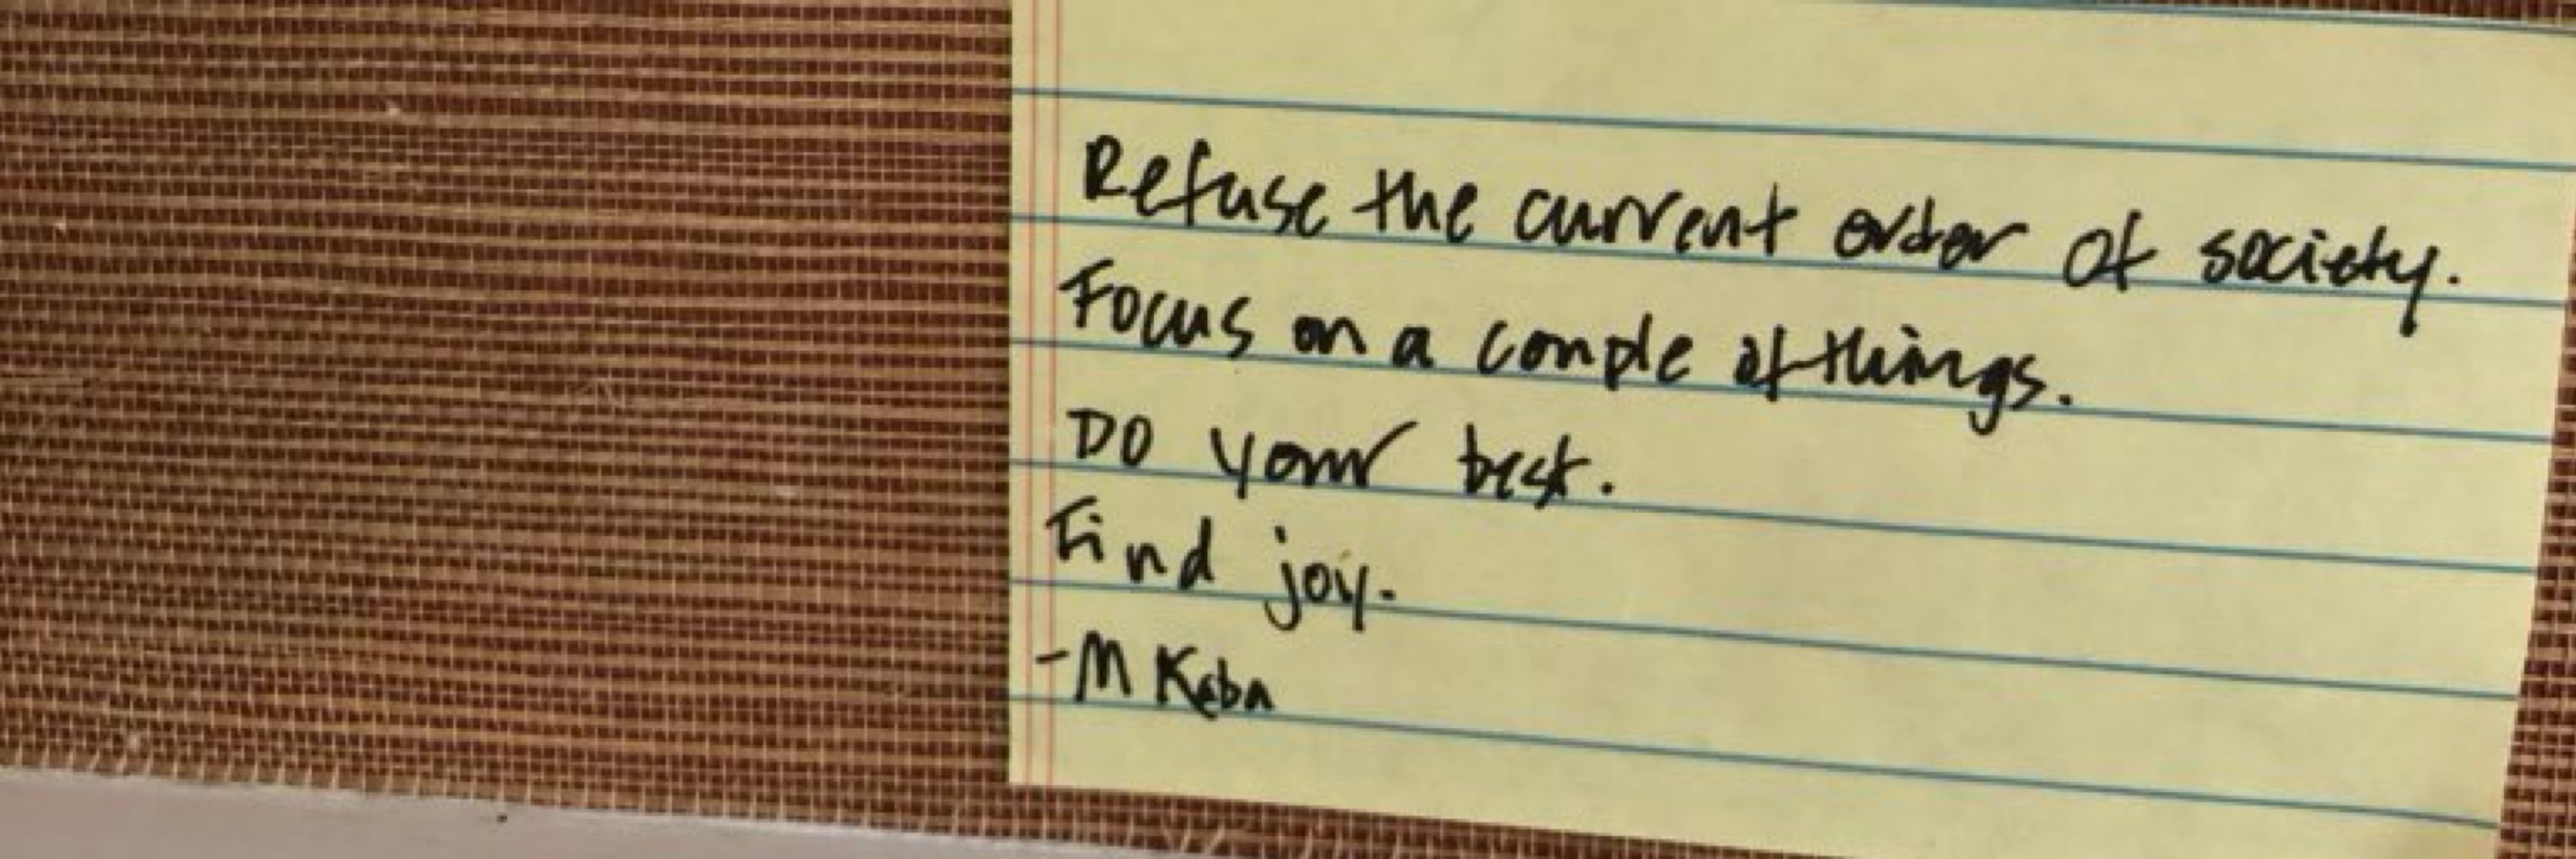 Refuse the current order of society.
Focus on a couple of things.
Do your best.
Find joy.
-M Kaba